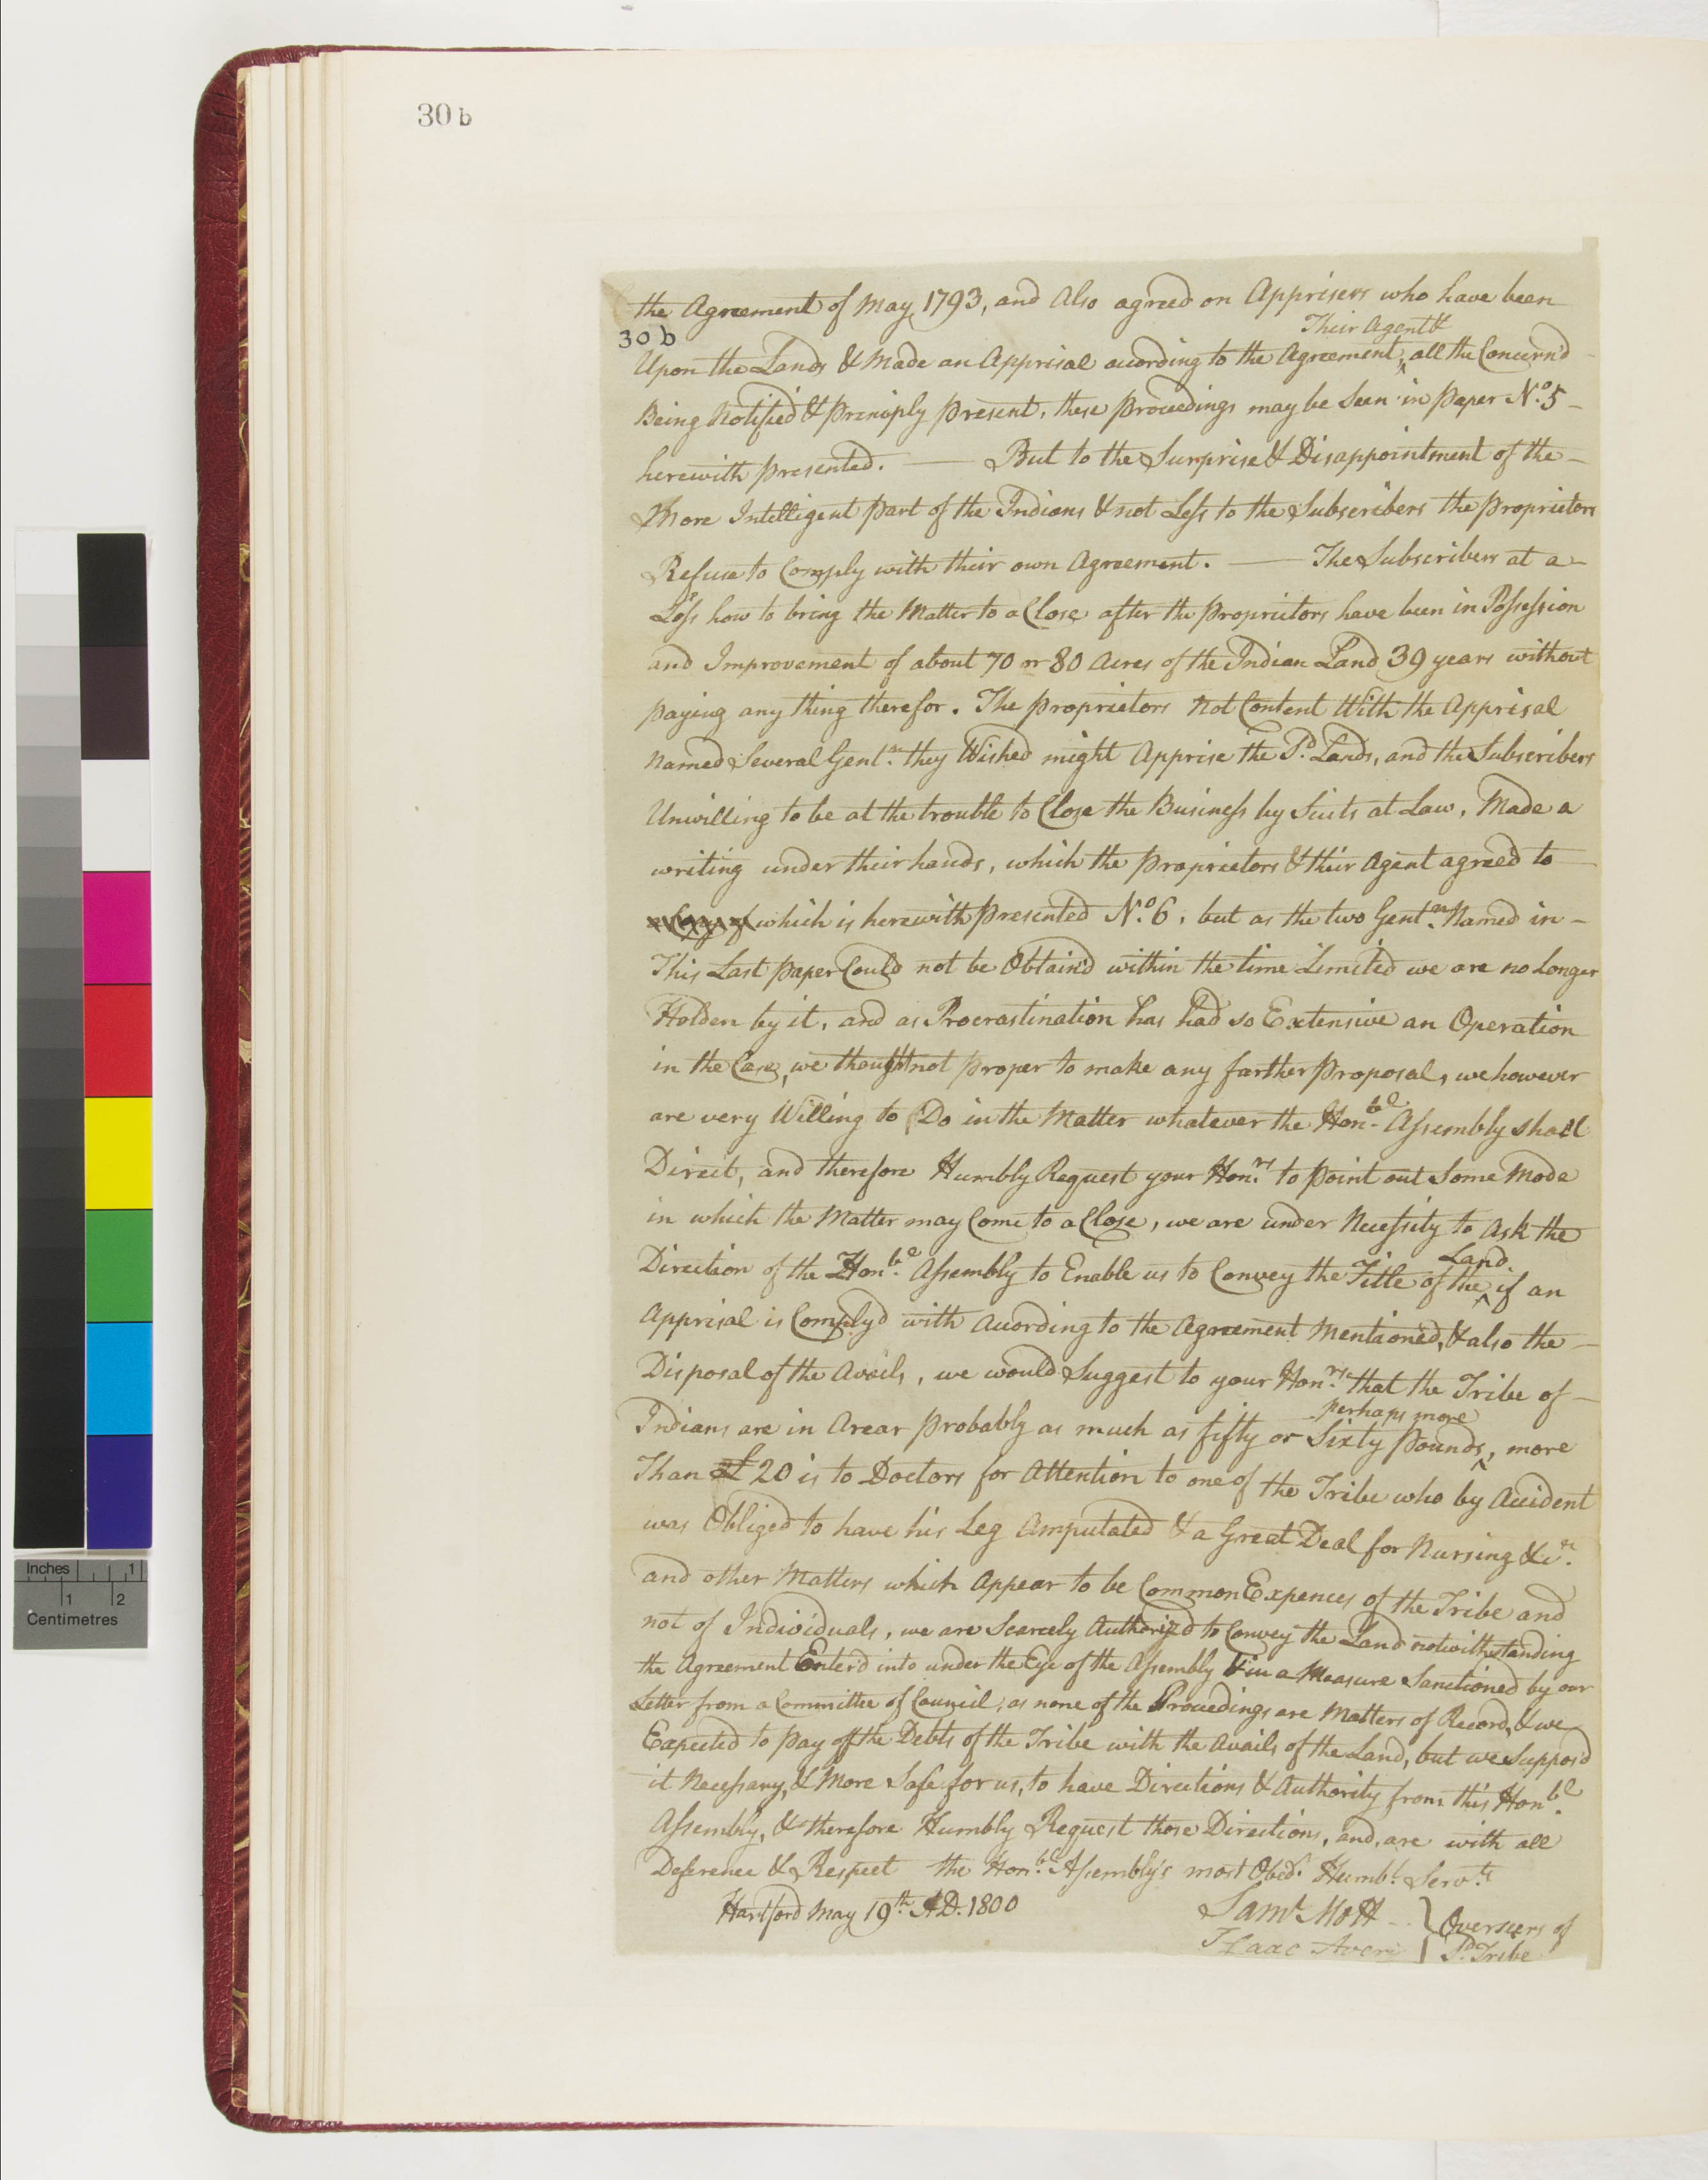 30 b
the Agreement of May 1793, and Also agreed on Apprisers who have been
30 b
Their Agent &
Upon the Lands & Made an Apprisal acording to the Agreement ^ all the Concern'd
Being Notified & Principly present, these proceedings may be Seen in paper N.o 5
herewith presented. — But to the Surprise & Disappointment of the
More Intelligent part of the Indians & not Less to the Subscribers the proprietors
Refuse to Comply with their own Agreement. — The Subscribers at a
Loss how to bring the Matter to a Close after the proprietors have been in Possession
and Improvement of about 70 or 80 Acres of the Indian Land 39 years without
paying any thing therefor. The proprietors Not Content With the Apprisal
Named Several Gent.n they Wished might Apprise the S.d Lands, and the Subscribers
Unwilling to be at the trouble to Close the Business by Suits at Law, Made a
writing under their hands, which the proprietors & their Agent agreed to
a Copy of which is herewith presented N.o 6, but as the two Gent.n Named in
This Last paper Could not be Obtain'd within the time Limited we are no Longer
Holden by it, and as Procrastination has had so Extensive an Operation
in the Case, we thought not proper to make any farther proposal, we however
are very Willing to Do in the Matter whatever the Hon.bl Assembly shall
Direct, and therefore Humbly Request your Hon.rs to point out Some Mode
in which the Matter may Come to a Close, we are under Necessity to Ask the
Land
Direction of the Hon.ble Assembly to Enable us to Convey the Title of the ^ if an
Apprisal is Comply'd with acording to the Agreement Mentioned, & also the
Disposal of the Avails, we would Suggest to your Hon.rs that the Tribe of
perhaps more
Indians are in Arear probably as much as fifty or Sixty pounds ^, more
Than £20 is to Doctors for Attention to one of the Tribe who by Accident
was Obliged to have his Leg Amputated & a Great Deal for Nursing &c.
and other Matters which Appear to be Common Expences of the Tribe and
not of Individuals, we are Scarcely Authoriz'd to Convey the Land notwithstanding
the Agreement Enter'd into under the Eye of the Assembly & in a Measure Sanctioned by our
Letter from a Committee of Council, as none of the Proceedings are Matters of Record, & we
Expected to pay off the Debts of the Tribe with the Avails of the Land, but we Suppos'd
it Necessary, & More Safe for us, to have Directions & Authority from this Hon.bl
Assembly, & therefore Humbly Request those Directions, and, are with all
Deference & Respect the Hon.bl Assembly's most Obed.t Humb.l Serv.ts
Hartford May 19.th AD. 1800
Sam.l Mott } Overseers of
Isaac Averi } S.d Tribe
Inches 1
1 2
Centimetres